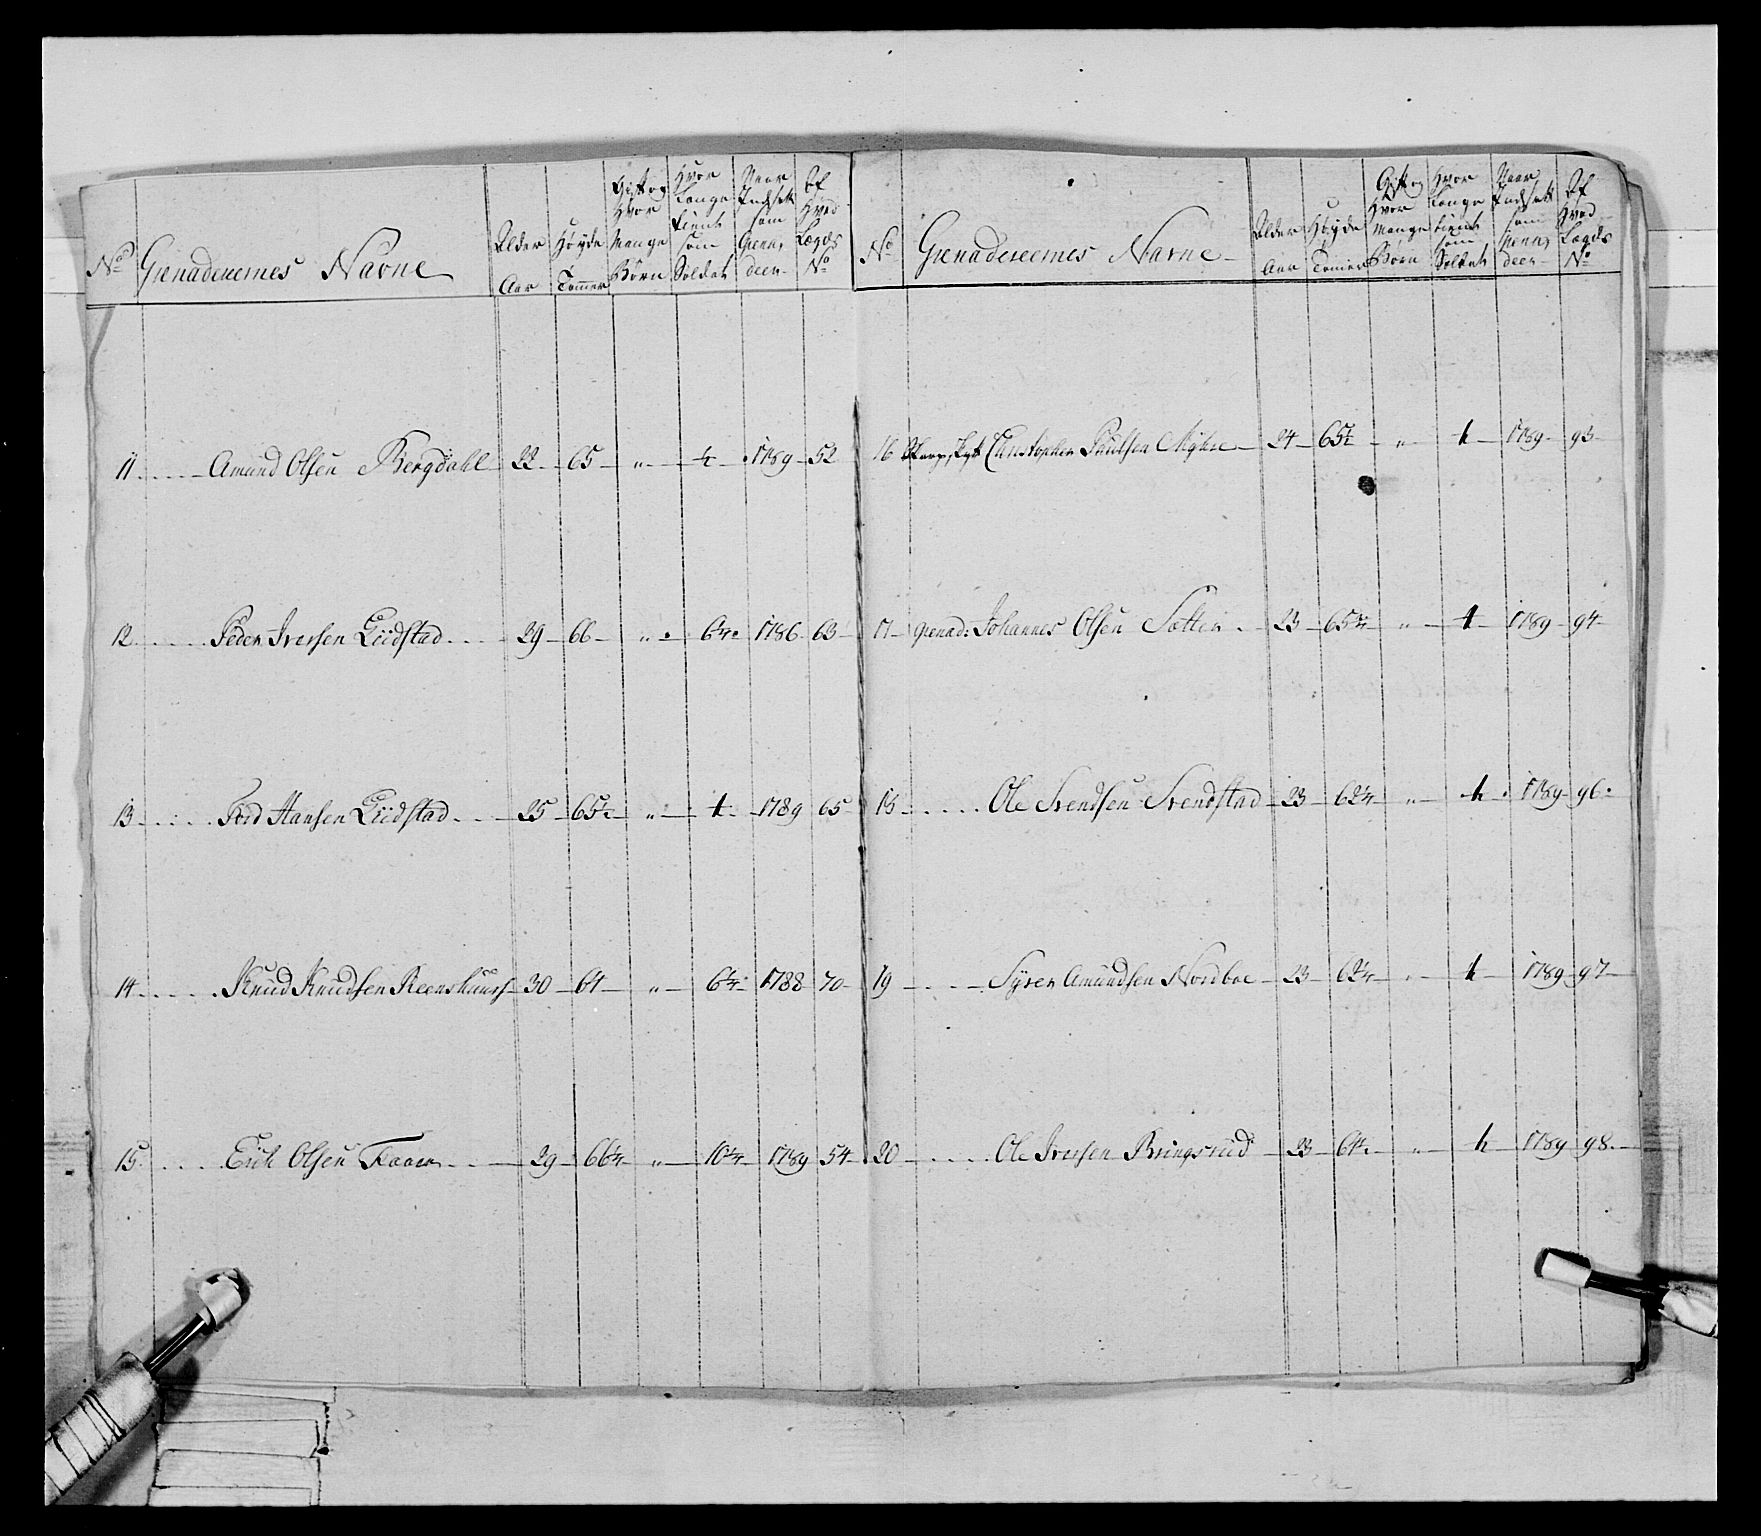 No Grenaderernes Navne Alder Aar Høyde Tommer Gift og Hvor Mange Børn Hvor Længe tient som Soldat Naar Indsatt som Grenadeer Af Hvad Lægds No
11 Amund Olsen Bergdahl 22 65 " 1789 52
12 Peder Iversen Liidstad 29 66 " 6 1786 63
13 Hansen Liidstad 25 65½ " 1789 65
14 Knud Knudsen 30 64 " 1788 70
15 Erich Olsen 29 66¼ " 10¼ 1789 54
No Grenaderernes Navne Alder Aar Høyde Tommer Gift og Hvor Mange Børn Hvor Længe tient som Soldat Naar Indsatt som Grenadeer Af Hvad Lægds No
16 Skarpskytt Christopher Paulsen Myhre 24 65½ " 1789 93
17 Grenad: Johannes Olsen Sætter 23 65¾ " 1789 94
18 Ole Svendsen Svendstad 23 62¼ " 1789 96
19 Syver Amundsen Nordboe 23 62¼ " 1789 97
20 Ole Iversen Bringsrud 23 64 " 1789 98